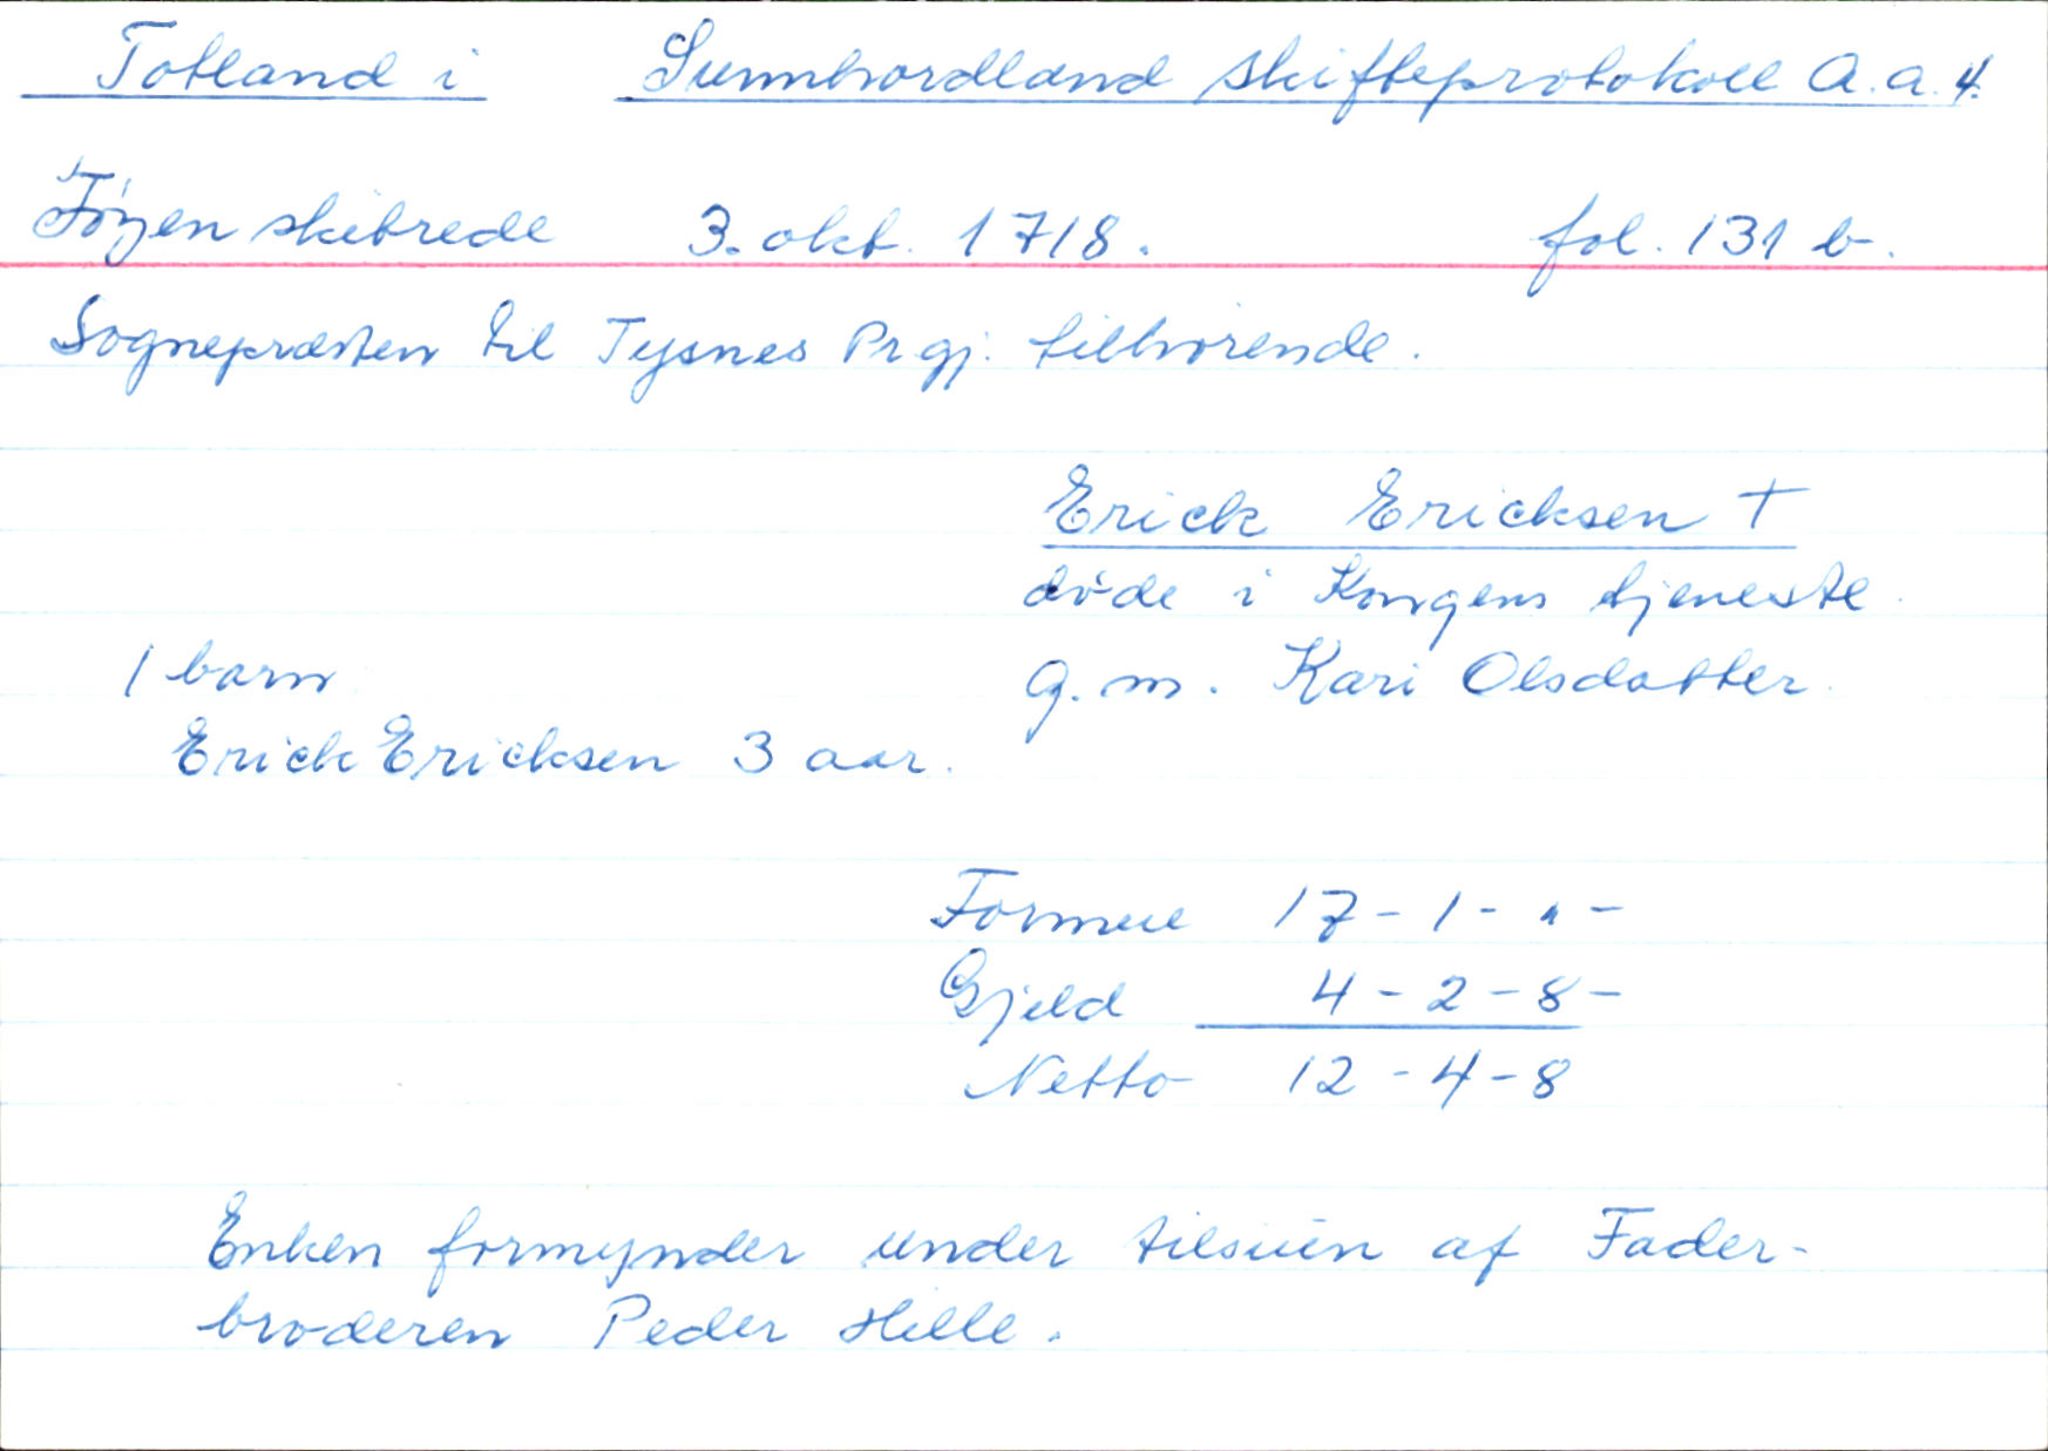 Totland i Sunnhordland skifteprotokoll A.a.4.
Føyen skibrede 3. okt. 1718. fol. 131 b.
Sognepræsten til Tysnes Prgj. tilhørende.
Erick Ericksen †
døde i Kongens tjeneste
1 barn g.m. Kari Olsdatter.
Erick Ericksen 3 aar.
Formue 17 - 1 - " -
Gjeld 4 - 2 - 8 -
Netto 12 - 4 - 8
Enken formynder under tilsuen af Fader-
broderen Peder Hille.